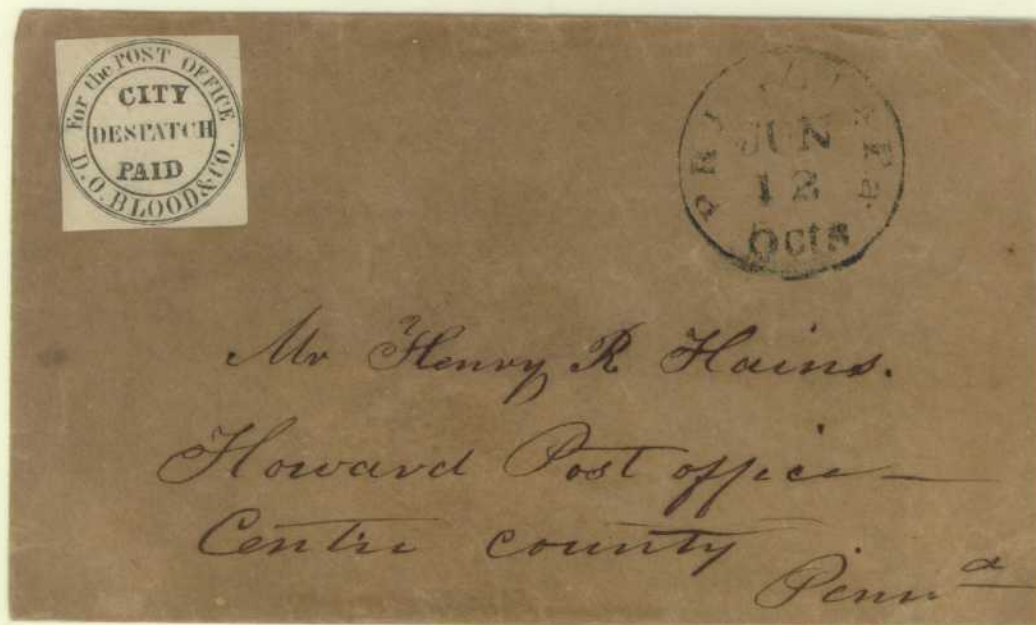 For the POST OFFICE
CITY
DESPATCH
PAID
D.O. BLOOD & CO.
Pa.
JUN
12
Mr Henry R Hains.
Howard Post office
Centre county
Penn a